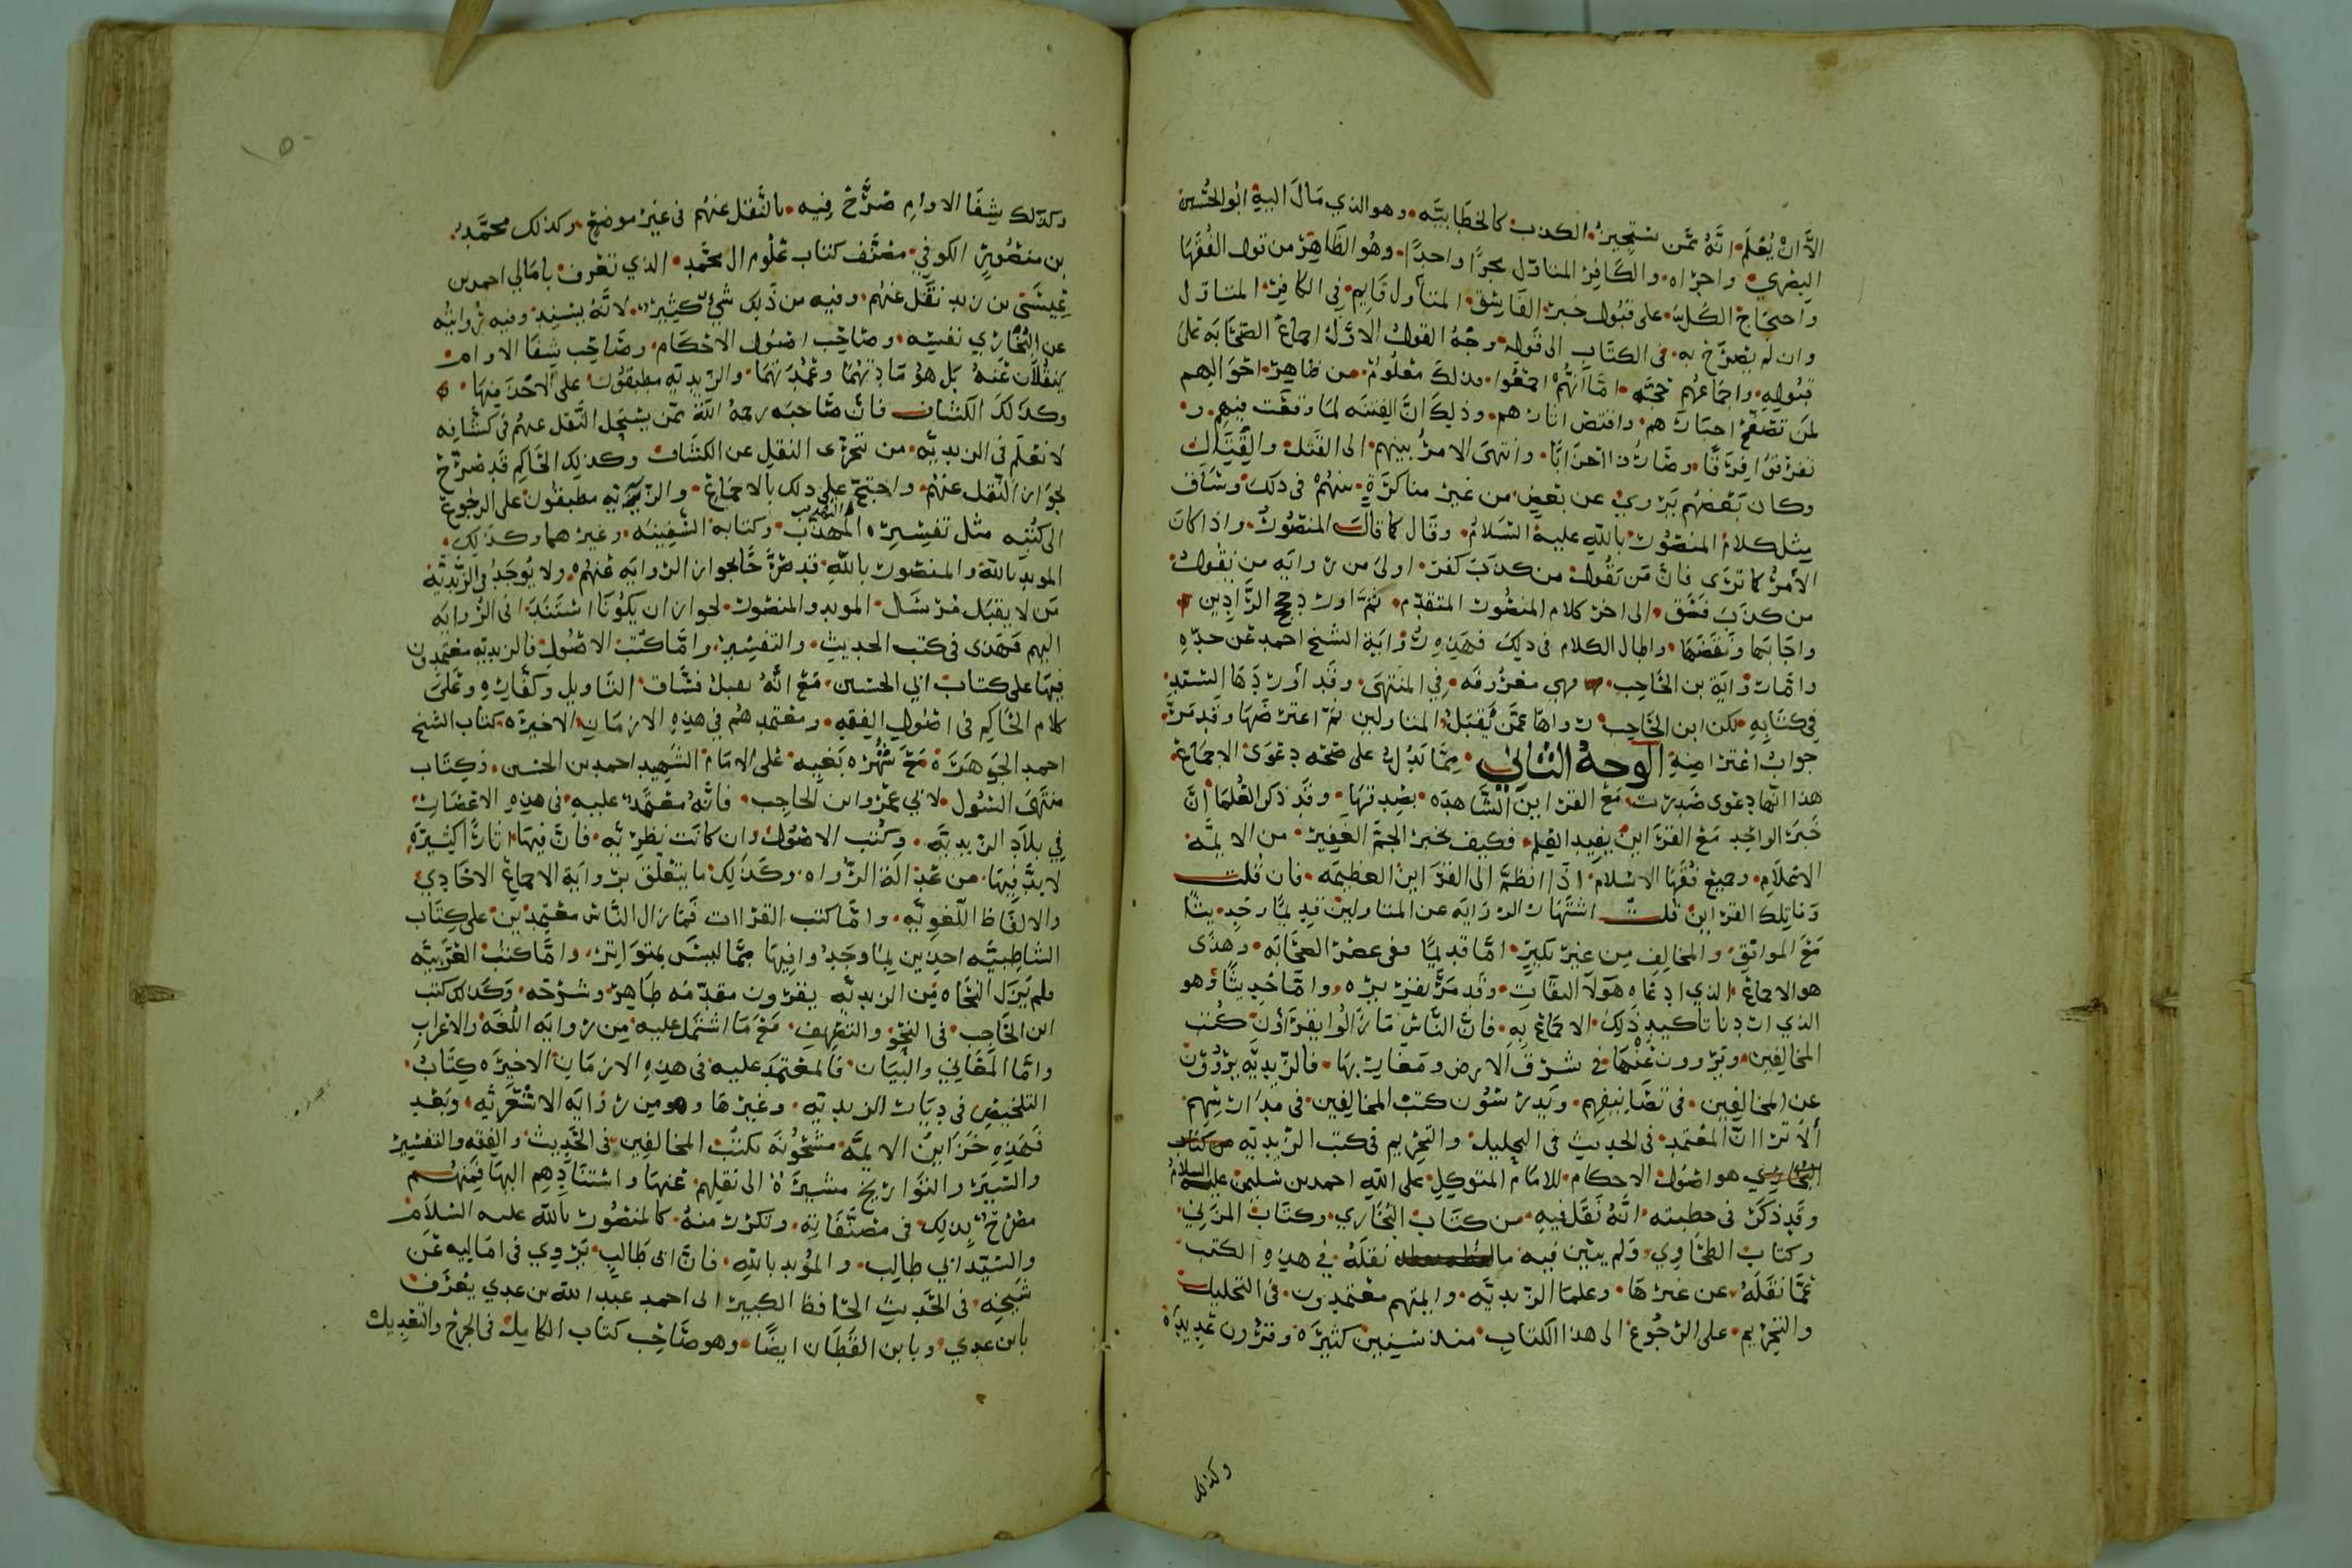 الا ان يُعْلَم انّهُ ممّن يستجيز الكذب كالخطابيّه وهو الذي مَالَ اليهِ ابُو الحُسَين
البصري واجراه والكافِر المتاوّل مجرًا واحِدًا وهُو الظَاهِر من قول الفُقهَا
واحتجاج الكُل على قبُول خبر الفَاسِق المتأول قَايم في الكافِر المتاوّل
وان لم يصرّح به في الكتاب الى قوله وجهُ القول الاوّل اجماعُ الصّحَابَه على
قبُولِه واجمَاعهُم حجّه امّا انّهُمْ اجمَعُوا فذلكَ معْلُومٌ من ظاهِر احْوَالِهم
لمَن تصَفّحَ اخبَارَهم واقتصّ اثارهم وذلِكَ انَّ الفِتنَه لمَا وَقعَت فيهِم و
تفرّقُوا فِرَقًا وصَارُوا احْزابًا وانتهَى الامرُ بينهم الى القَتل والقِتَال
وكان بَعْضهُم يَرْوي عن بَعضٍ من غير مناكرَةٍ منهُمْ في ذلكَ وسَاق
مِثل كلام المنصُور بالله عليه السّلامُ وقَال كما قالَ المنصُور واذا كانَ
الأمرُ كما تَرَى فانّ مَن يَقُول من كذبَ كفر اولى من روايَه من يَقُول
من كذبَ فسَق الى اخر كلام المنصُور المتقدّم ثمّ اورد حجج الرّادِين
واجَابهَا ونَقضَهَا واطال الكلام في ذلِكَ فهَذهِ رِوَاية الشيخ احمد عَن جدّهِ
وامّا رِوَايَة بن الحَاجِب فهي معْرُوفَه في المنتهَى وقد أوْرَدَهَا السّيّد
في كتَابِهِ لكن ابن الحَاجِب رواهَا عمّن يَقبَلُ المتاولين ثمّ اعترضَهَا وقد مَرّ
جوابُ اعْتراضِهِ الوجهُ الثاني ممّا يَدُلّ على صحّه دعْوَى الاجمَاع
هذا انّها دعوى صَدرَت مَعَ القراين الشّاهدَه بصِدقهَا وقد ذكر العُلمَا أنّ
خَبَر الوَاحِد مَعَ القرَاين يفيد العِلم فكيف بخبر الجَمّ الغَفِير من الايمّه
الاعْلَام وجميع فُقَهَا الاسْلَام اذا انظمّ الى القرَاين العظيمَه فان قلت
وما تِلكَ القراين قلت اشتهَار الروَايَه عن المتاولين قديمًا وحَدِيثًا
مَعَ الموافِق والمخالِف مِن غير نكيرٍ امّا قديمًا ففي عصر الصحَابَه وهذَى
هو الاجماع الذي ادعَاه هَؤلآ الثقَات وقد مَرّ تقريره وامّا حَدِيثًا وهو
الذي ارَدنا تأكيد ذَلِكَ الاجمَاع بِه فانّ النّاسَ مَا زَالُوا يقرَؤُن كُتب
المخالِفين وَيَرْوون عنْهَا في شرق الارض ومغاربهَا فالزّيديّه يَرْوُون
عن المخالِفِين في تصَانيفهِم ويَدرسُون كتبَ المخالِفين في مدَارسِهم
ألا ترَا انّ المعْتمَد في الحديث في التحليل والتحرِيم في كتب الزّيديّه
هو اصُول الاحكام للامَام المتوكِل على الله احمد بن سليمن عليه السلام
وقد ذكَرَ في خطبته انّهُ نَقَل فيهِ من كتَاب البُخَارِي وكتَاب المزَني
وكتاب الطحَاوِي وَلم يبيّن فيه ما نقلَهُ في هذهِ الكتب
ممّا نَقلَهُ عن غيرهَا وعلمَا الزّيديّه وايمّتهم معْتمدُون في التحليل
والتحرِيم على الرّجُوع الى هذا الكتاب منذ سِنِين كثيرَه وقرُون عديدَه
وكذلك
وكذلك شِفَا الاوامِ صَرّح فيه بالنّقل عنهُم في غير موضع وكذلك محمّد
بن منصُورٍ الكوفي مصنّف كتاب عُلُوم ال محمّد الذي تعْرف بامَالي احمد بن
عِيسَى بن زيد نَقَل عَنهُم وفيه من ذلِك شيءٌ كثِيرٌ لانّهُ يسند وفيه رِوايتُه
عن البُخَاري نفسِه وصَاحِب اصُول الاحْكَام وصَاحِب شِفَا الاوام
يَنقُلان عَنهُ بَل هوَ مَادّتهُمَا وعُمْدَتهُمَا والزّيديّه مطبقُون على الاخْذ منهَا
وكذلكَ الكشّاف فانّ صَاحبَه رحمهُ الله ممّن يستحِل النّقل عنهُم في كشّافِه
لا نعلَم في الزيديّه من تحَرّى النقلِ عن الكشّاف وكذلِكَ الحَاكِم قد صَرّح
بجَوَاز النّقل عنهُم واحتجّ على ذلك بالاجمَاع والزّيديّه مطبقُون على الرجوع
الى كتُبِه مثل تفسِيرِه التهذيب وكتابه السّفِينه وغيرهما وكذلِكَ
المويد بالله والمنصُور بالله قد صَرّحَا بجواز الرّوَايَه عَنهُم ولا يُوجَدُ في الزّيديّه
مَن لا يقبَل مُرسَل المويد والمنصُور لجواز ان يكُونَا اسْتَنَدَا في الرّوايَه
اليهم فهَذى في كتب الحديث والتفسِير وامّا كتب الاصُول فالزيديّه معْتمدُون
فيهَا على كتاب ابي الحسَين مَعَ انّهُ يقبل فسّاق التاويل وكفّارهِ وعلَى
كلام الحَاكِم في اصُول الفِقه ومعْتمدهُم في هذِهِ الازمَان الاخيرَه كتاب الشيخ
احمد الجَوهَرَة مَعَ شُهْرَه بَغيِه على الامَام الشّهِيد احمد بن الحسَين وكِتَاب
منتَهَى السّول لابي عمرو ابن الحاجِب فانّهُ معْتمَدٌ عليه في هذِه الاعْصَار
في بلَاد الزّيديّه وكُتب الاصُول وان كانَت نظرِيّه فانّ فيهَا اثارًا كثيرَه
لا بدّ فِيهَا من عَدَالة الرّوَاه وكذلِكَ ما يتعلّق برِوَايَة الاجماع الاحَادي
والالفَاظ اللّغويّه وامّا كتب القرَاات فمَا زال النّاس معْتمدين على كِتَاب
الشاطِبيّه اخِذِين لِمَا وجَدُوا فيهَا ممّا ليسَ بمتوَاتِر وامّا كتب العَرَبيّه
فلم يَزل النحَاه مِن الزيديّه يقرُون مقدّمَه طَاهِر وشرْحَه وكذلك كتب
ابن الحَاجِب في النحْو والتصْرِيف مَعَ مَا اشتمَل عليه من رِوايَه اللّغَه والاعْرَابِ
وامّا المعَاني والبَيَان فالمعْتمَد عليه في هذِهِ الازمَان الاخيرَه كِتَابُ
التلخِيص في ديَار الزيديّه وغيرهَا وهو من رِوَايَه الاشْعَريّه وبَعْد
فهَذِهِ خَزَاينُ الايمّه مشحُونَه بكتب المخالفِين في الحَدِيث والفِقه والتفسير
والسّيَر والتّوَارِيخ مشيرَة الى نقلهِم عَنهَا واستنَادِهِم اليهَا فمنهُم
مصَرّح بذلك في مصَنّفَاتِه ومكرّر منهُ كالمنصُور بالله عليه السّلَام
والسّيّد ابي طالِب والمؤيد بالله فانّ ابَى طَالِبٍ يَرْوِي في امَاليه عَن
شَيخِه في الحَدِيث الحَافظ الكبير ابى احمد عبد الله بن عدي يعْرَف
بابن عدِي وبابن القَطَان ايضًا وهو صَاحِب كتاب الكامِل في الجرحْ والتعْدِيل